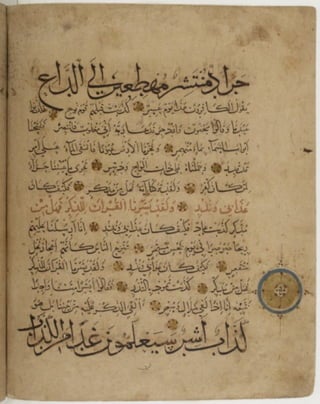 جراد منتشر مهطعين الى الداع
يقول الكافرون هذا يوم عسر كذبت قبلهم قوم نوح فكذبوا
عبدنا وقالوا مجنون وازدجر فدعا ربه انى مغلوب فانتصر ففتحنا
ابواب السماء بماء منهمر وفجرنا الارض عيونا فالتقى الماء على امر
قد قدر وحملناه على ذات الواح ودسر تجرى باعيننا جزاء
لمن كان كفر ولقد تركناها اية فهل من مدكر فكيف كان
عذابى ونذر ولقد يسرنا القران للذكر فهل من
مدكر كذبت عاد فكيف كان عذابى ونذر انا ارسلنا عليهم
ريحا صرصرا فى يوم نحس مستمر تنزع الناس كانهم اعجاز نخل
منقعر فكيف كان عذابى ونذر ولقد يسرنا القران للذكر
فهل من مدكر كذبت ثمود بالنذر فقالوا ابشرا منا واحدا
نتبعه انا اذا لفى ضلال وسعر االقى الذكر عليه من بيننا بل هو
كذاب اشر سيعلمون غدا من الكذاب